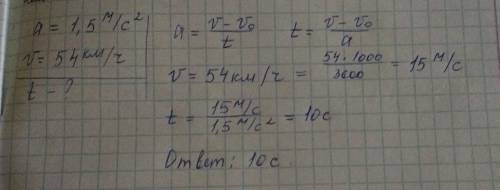 a = 1,5 м/с²
v = 54 км/ч
t - ?
a = (v - v₀)/t    t = (v - v₀)/a
v = 54 км/ч = (54 · 1000)/3600 = 15 м/с
t = (15 м/с)/(1,5 м/с²) = 10 с
Ответ: 10 с